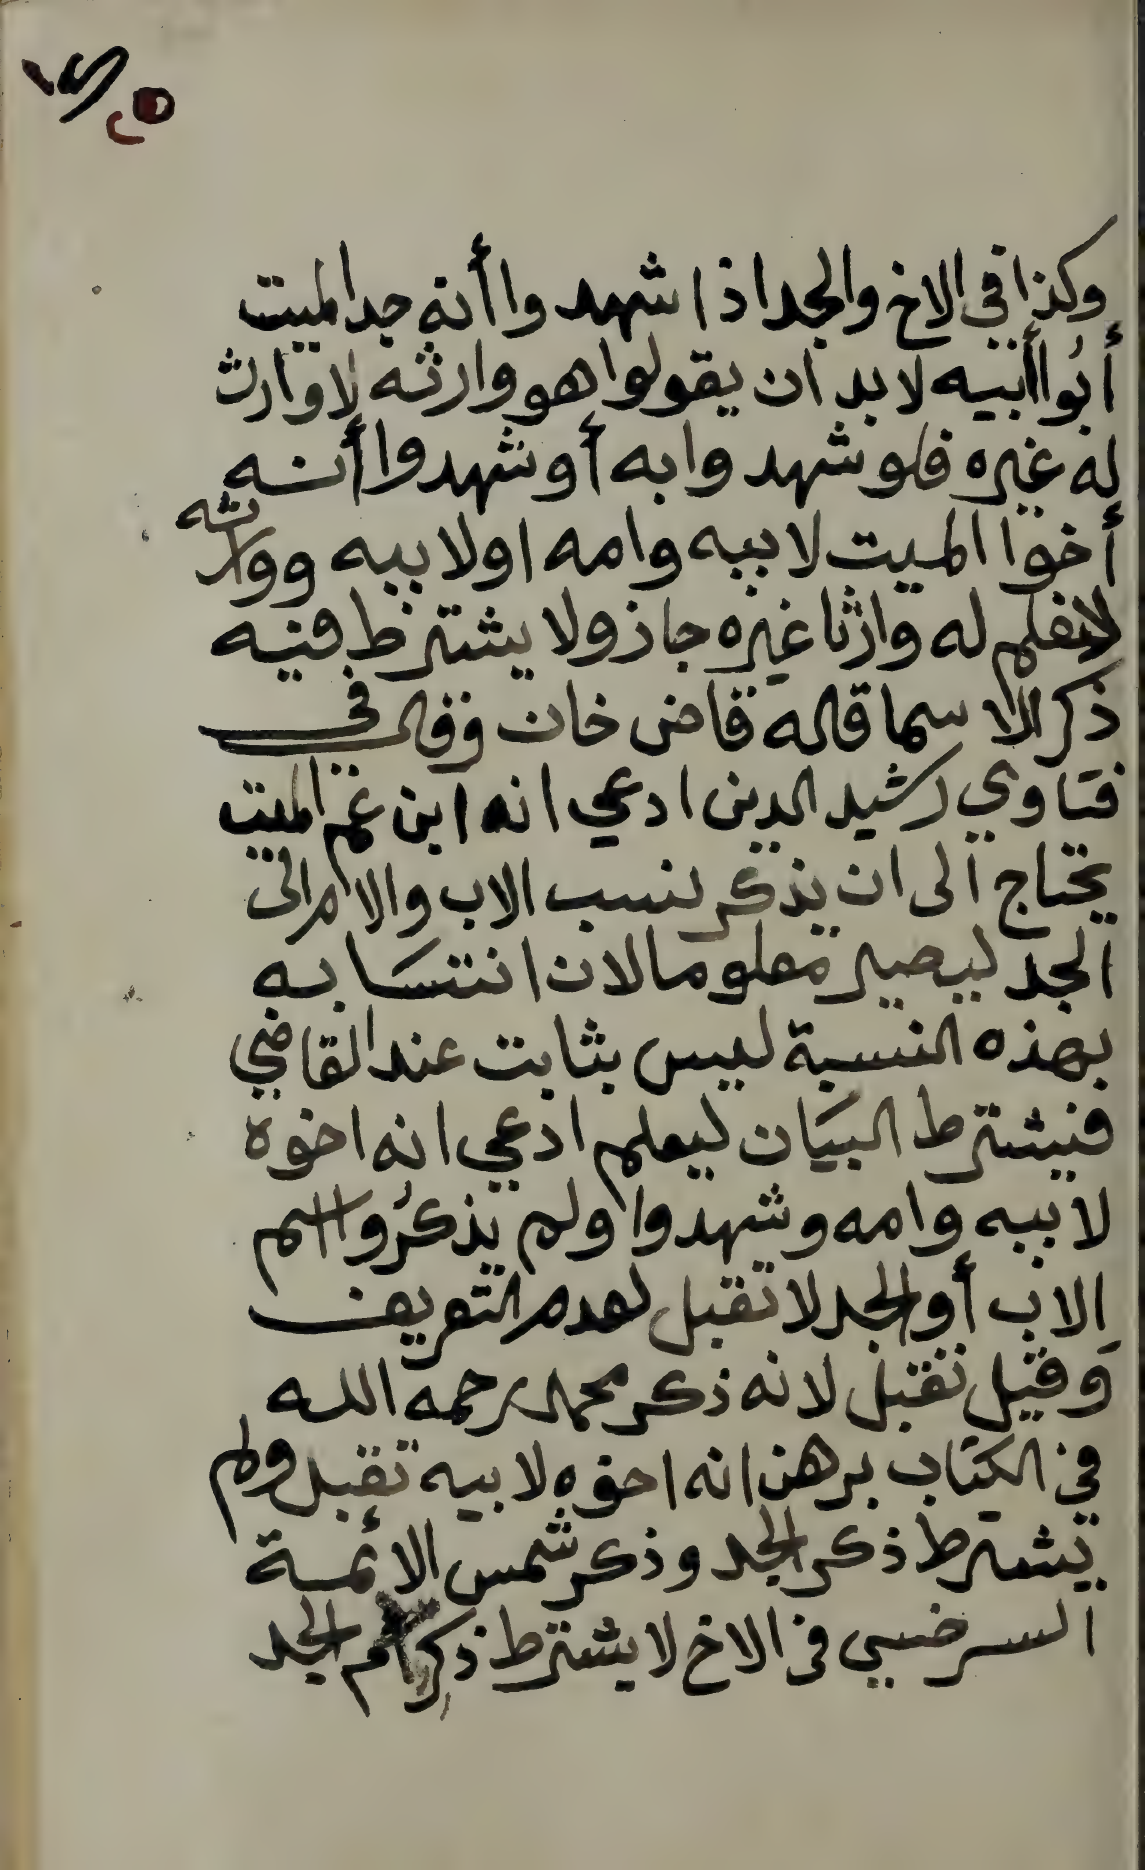 وكذا في الاخ والجد اذا شهدوا أنه جد الميت
أبوا أبيه لا بد ان يقولوا هو وارثه لا وارث
له غيره فلو شهدوا به أو شهدوا أنه
أخوا الميت لابيه وامه او لابيه ووارثه
لا نعلم له وارثا غيره جاز ولا يشترط فيه
ذكر الاسما قاله قاض خان وقال في
فتاوي رشيد الدين ادعي انه ابن عم الميت
يحتاج الى ان يذكر نسب الاب والام الى
الجد ليصير معلوما لان انتسابه
بهذه النسبة ليس بثابت عند القاضي
فيشترط البيان ليعلم ادعي انه اخوه
لابيه وامه وشهدوا ولم يذكروا اسم
الاب أو الجد لا تقبل لعدم التعريف
وقيل تقبل لانه ذكر محمد رحمه الله
في الكتاب برهن انه اخوه لابيه تقبل ولم
يشترط ذكر الجد وذكر شمس الائمة
السرخسي في الاخ لا يشترط ذكر اسم الجد